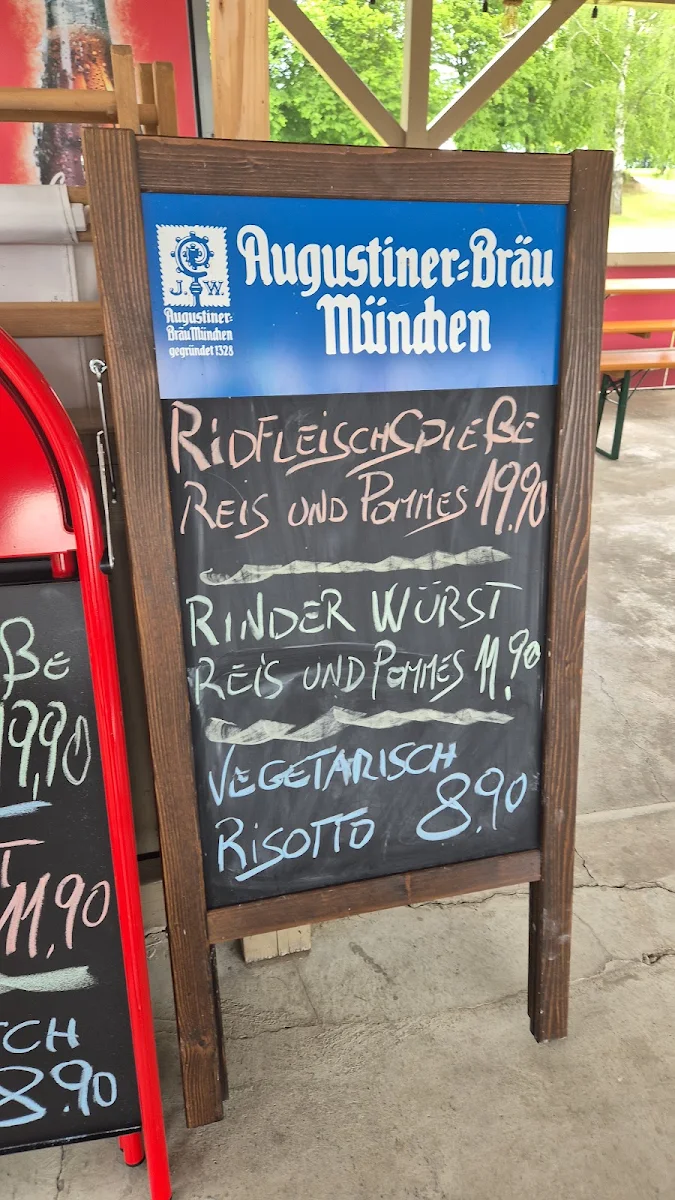 Augustiner-Bräu
München
J. W.
Augustiner-
Bräu München
gegründet 1328
RiDFLEiSCHSPiEßE
REiS UND POMMES 19.90
RINDER WÜRST
REiS UND POMMES 11.90
VEGETARiSCH
RiSOTTO 8.90
ßE
19,90
T
11,90
CH
8.90